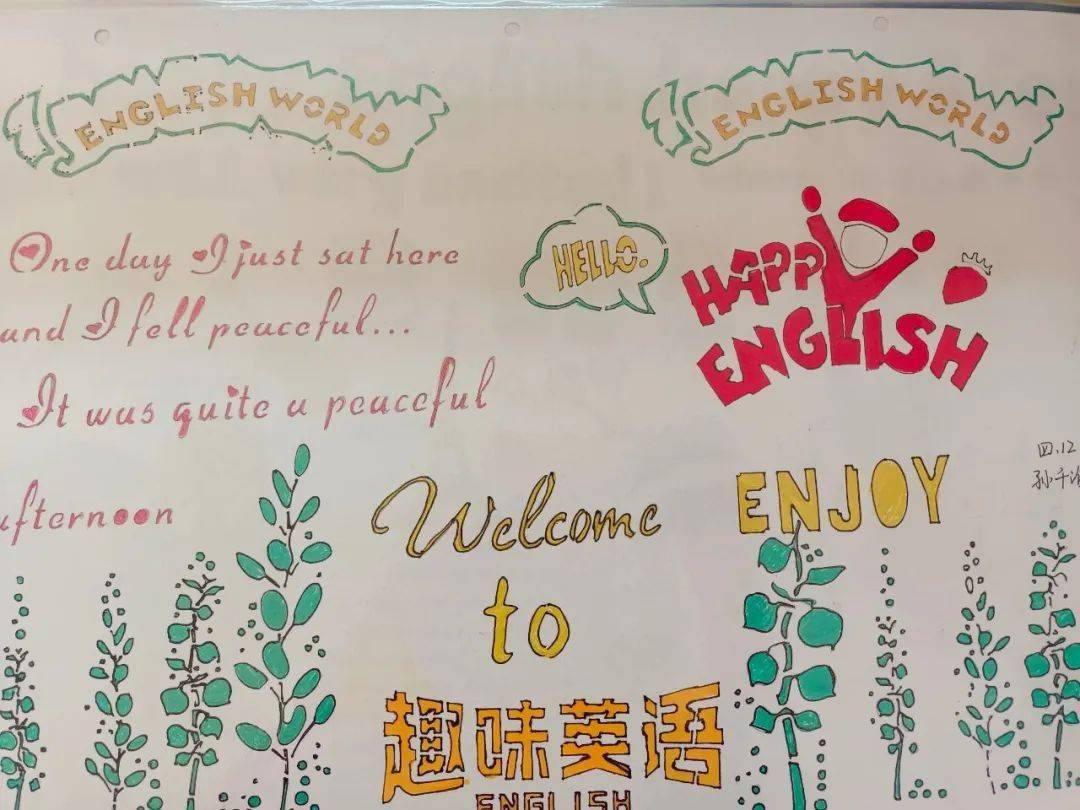 ENGLISH WORLD
ENGLISH WORLD
One day I just sat here
and I fell peaceful...
It was quite a peaceful
afternoon
HELLO.
HAPPY
ENGLISH
四.12
Welcome
to
趣味英语
ENGLISH
ENJOY